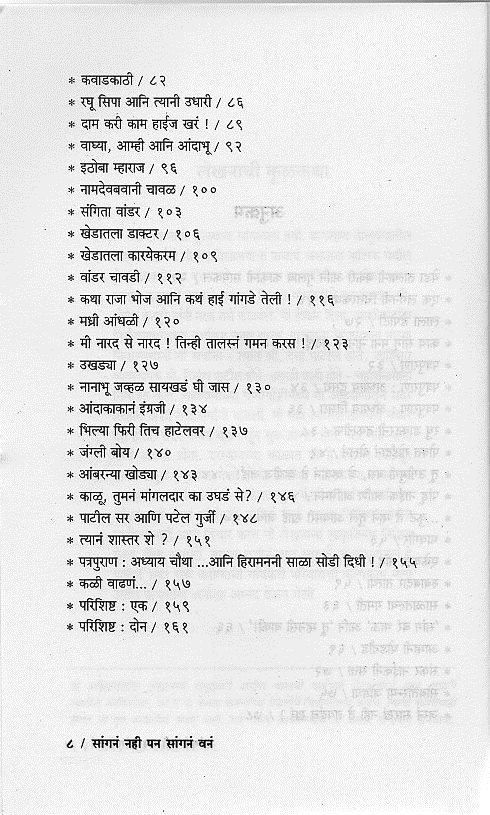 * कवाडकाठी / ८२
* रघू सिपा आनि त्यानी उधारी / ८६
* दाम करी काम हाईज खरं ! / ८९
* वाघ्या, आम्ही आनि आंदाभू / ९२
* इठोबा म्हाराज / ९६
* नामदेवबवानी चावळ / १००
* संगिता वांडर / १०३
* खेडातला डाक्टर / १०६
* खेडातला कारयेकरम / १०९
* वांडर चावडी / ११२
* कथा राजा भोज आनि कथं हाई गांगडे तेली ! / ११६
* मथ्री आंधळी / १२०
* मी नारद से नारद ! तिन्ही तालस्नं गमन करस ! / १२३
* उखड्या / १२७
* नानाभू जव्हळ सायखडं घी जास / १३०
* आंदाकाकानं इंग्रजी / १३४
* भिल्या फिरी तिच हाटेलवर / १३७
* जंग्ली बोय / १४०
* आंबरन्या खोड्या / १४३
* काळू, तुमनं मांगलदार का उघडं से? / १४६
* पाटील सर आणि पटेल गुर्जी / १४८
* त्यानं शास्तर शे ? / १५१
* पत्रपुराण : अध्याय चौथा ...आनि हिरामननी साळा सोडी दिधी ! / १५५
* कळी वाढणं... / १५७
* परिशिष्ट : एक / १५९
* परिशिष्ट : दोन / १६१
८ / सांगनं नही पन सांगनं वनं